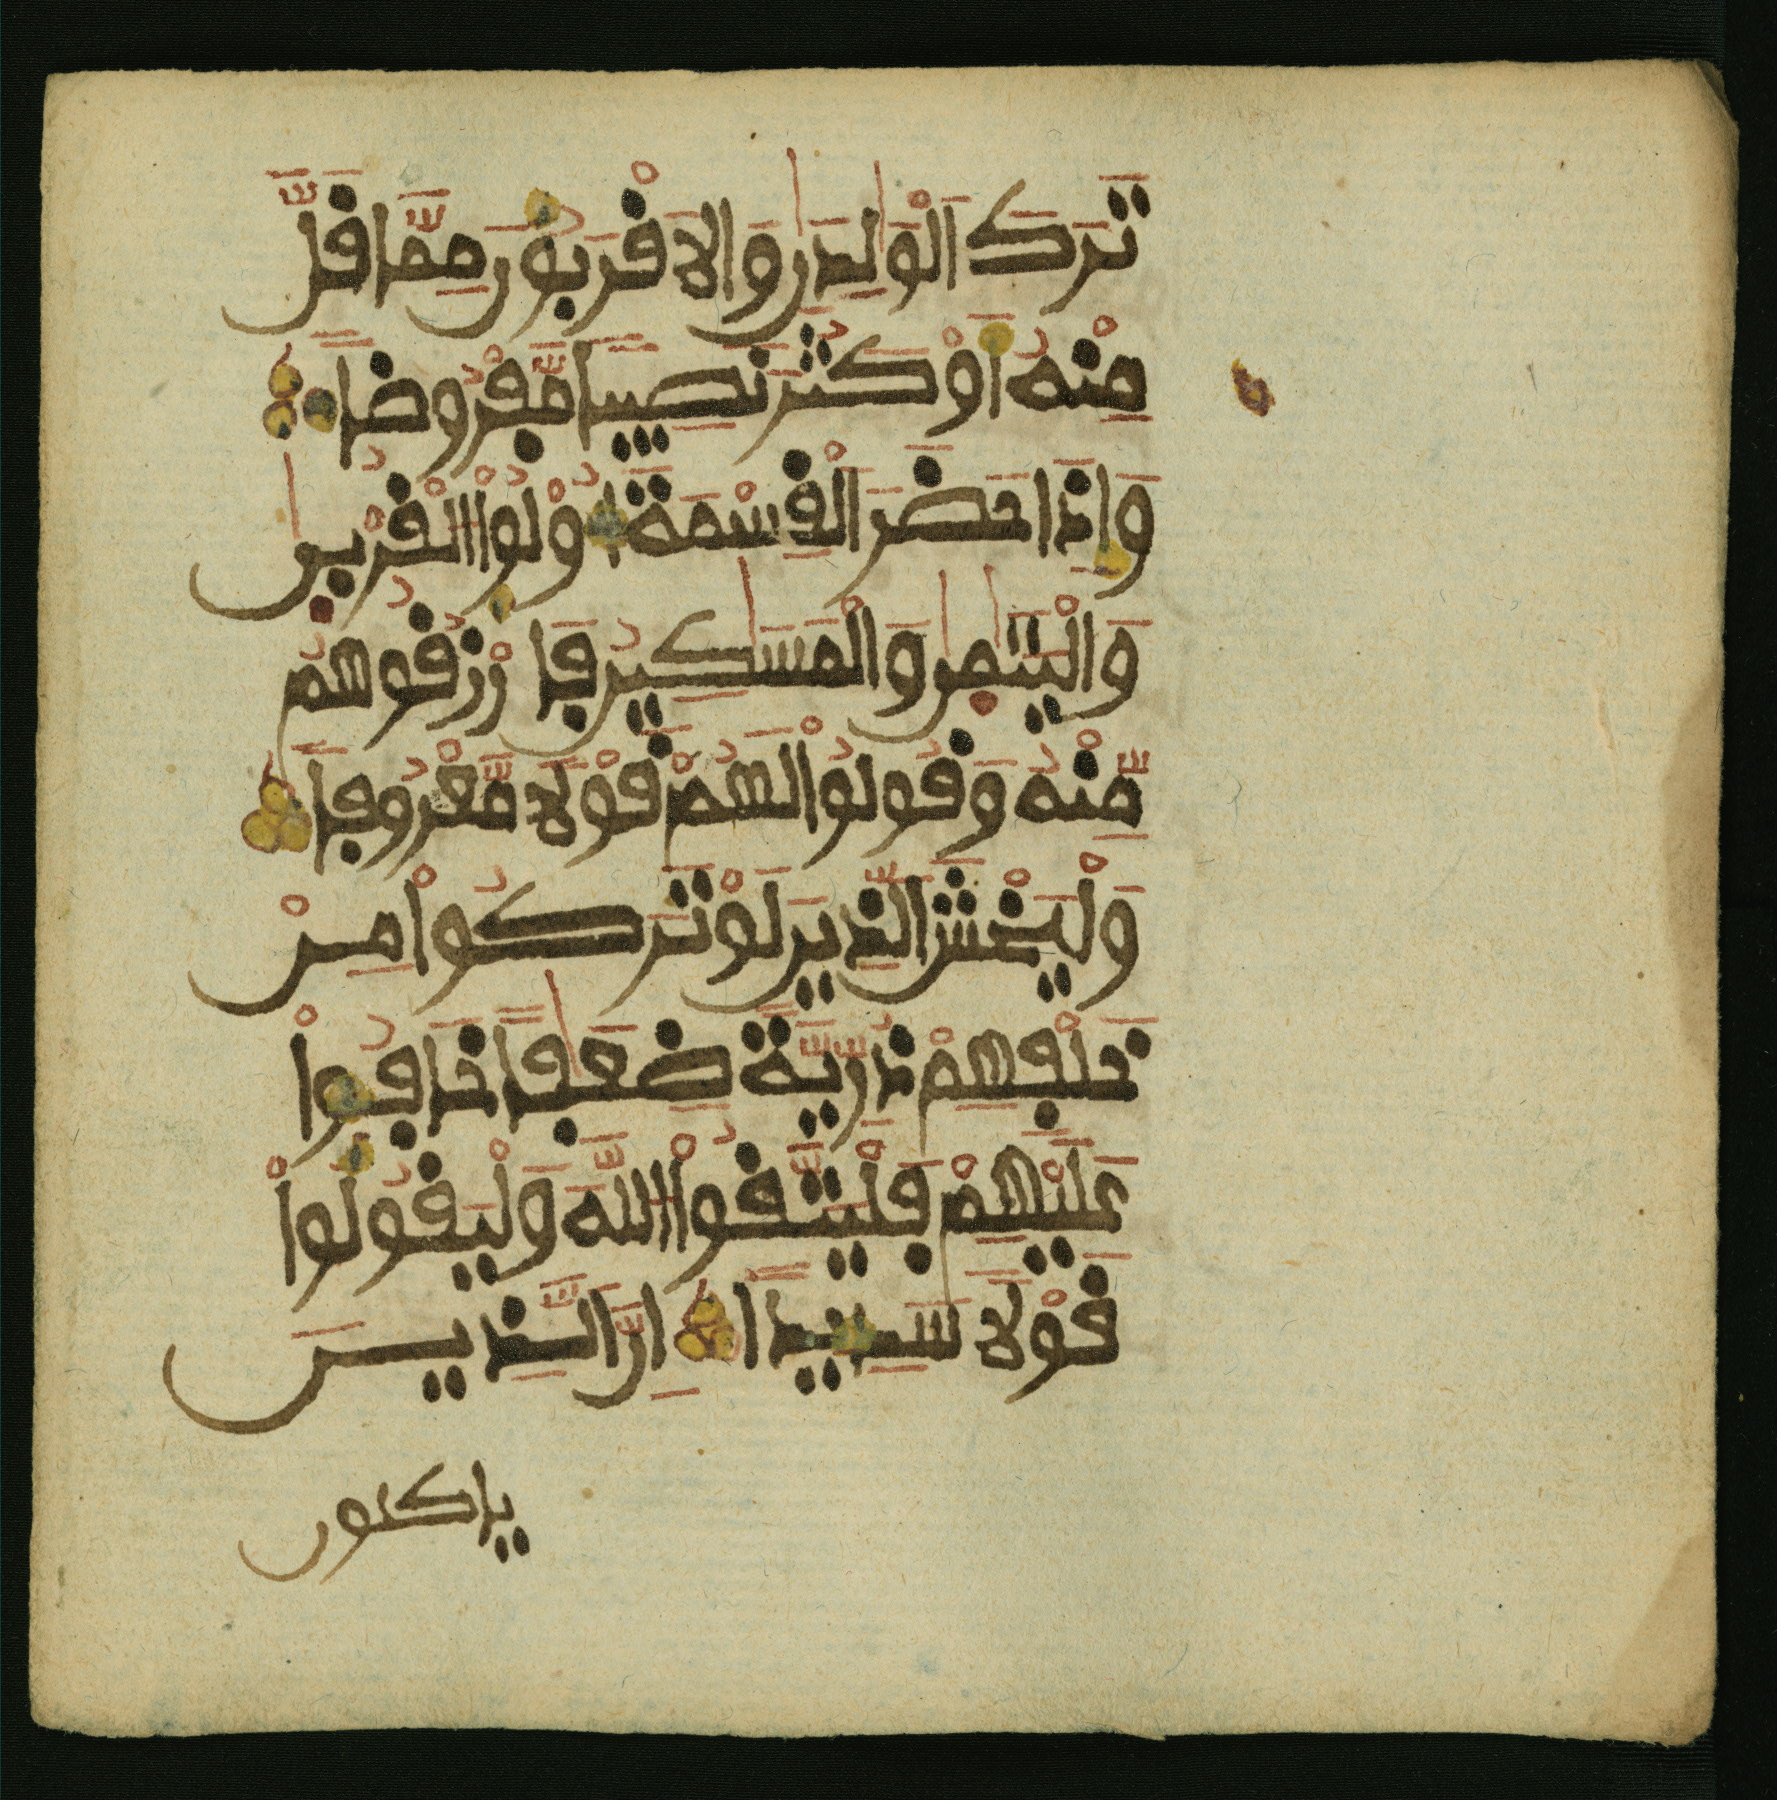 تَرَكَ اَلْوَٰلِدَٰنِ وَالَاقْرَبُونَ مِمَّا قَلَّ
مِنْهُ أَوْ كَثُرَ نَصِيباً مَّفْرُوضاً
وَإِذَا حَضَرَ اَلْقِسْمَةَ أُوْلُواْ اُلْقُرْبىٰ
وَالْيَتَٰمىٰ وَالْمَسَٰكِينُ فَارْزُقُوهُم
مِّنْهُ وَقُولُواْ لَهُمْ قَوْلاً مَّعْرُوفاً
وَلْيَخْشَ اَلَّذِينَ لَوْ تَرَكُواْ مِنْ
خَلْفِهِمْ ذُرِّيَّةً ضِعَٰفاً خَافُواْ
عَلَيْهِمْ فَلْيَتَّقُواْ اُللَّهَ وَلْيَقُولُواْ
قَوْلاً سَدِيداً إِنَّ اَلَّذِينَ
ياكلون